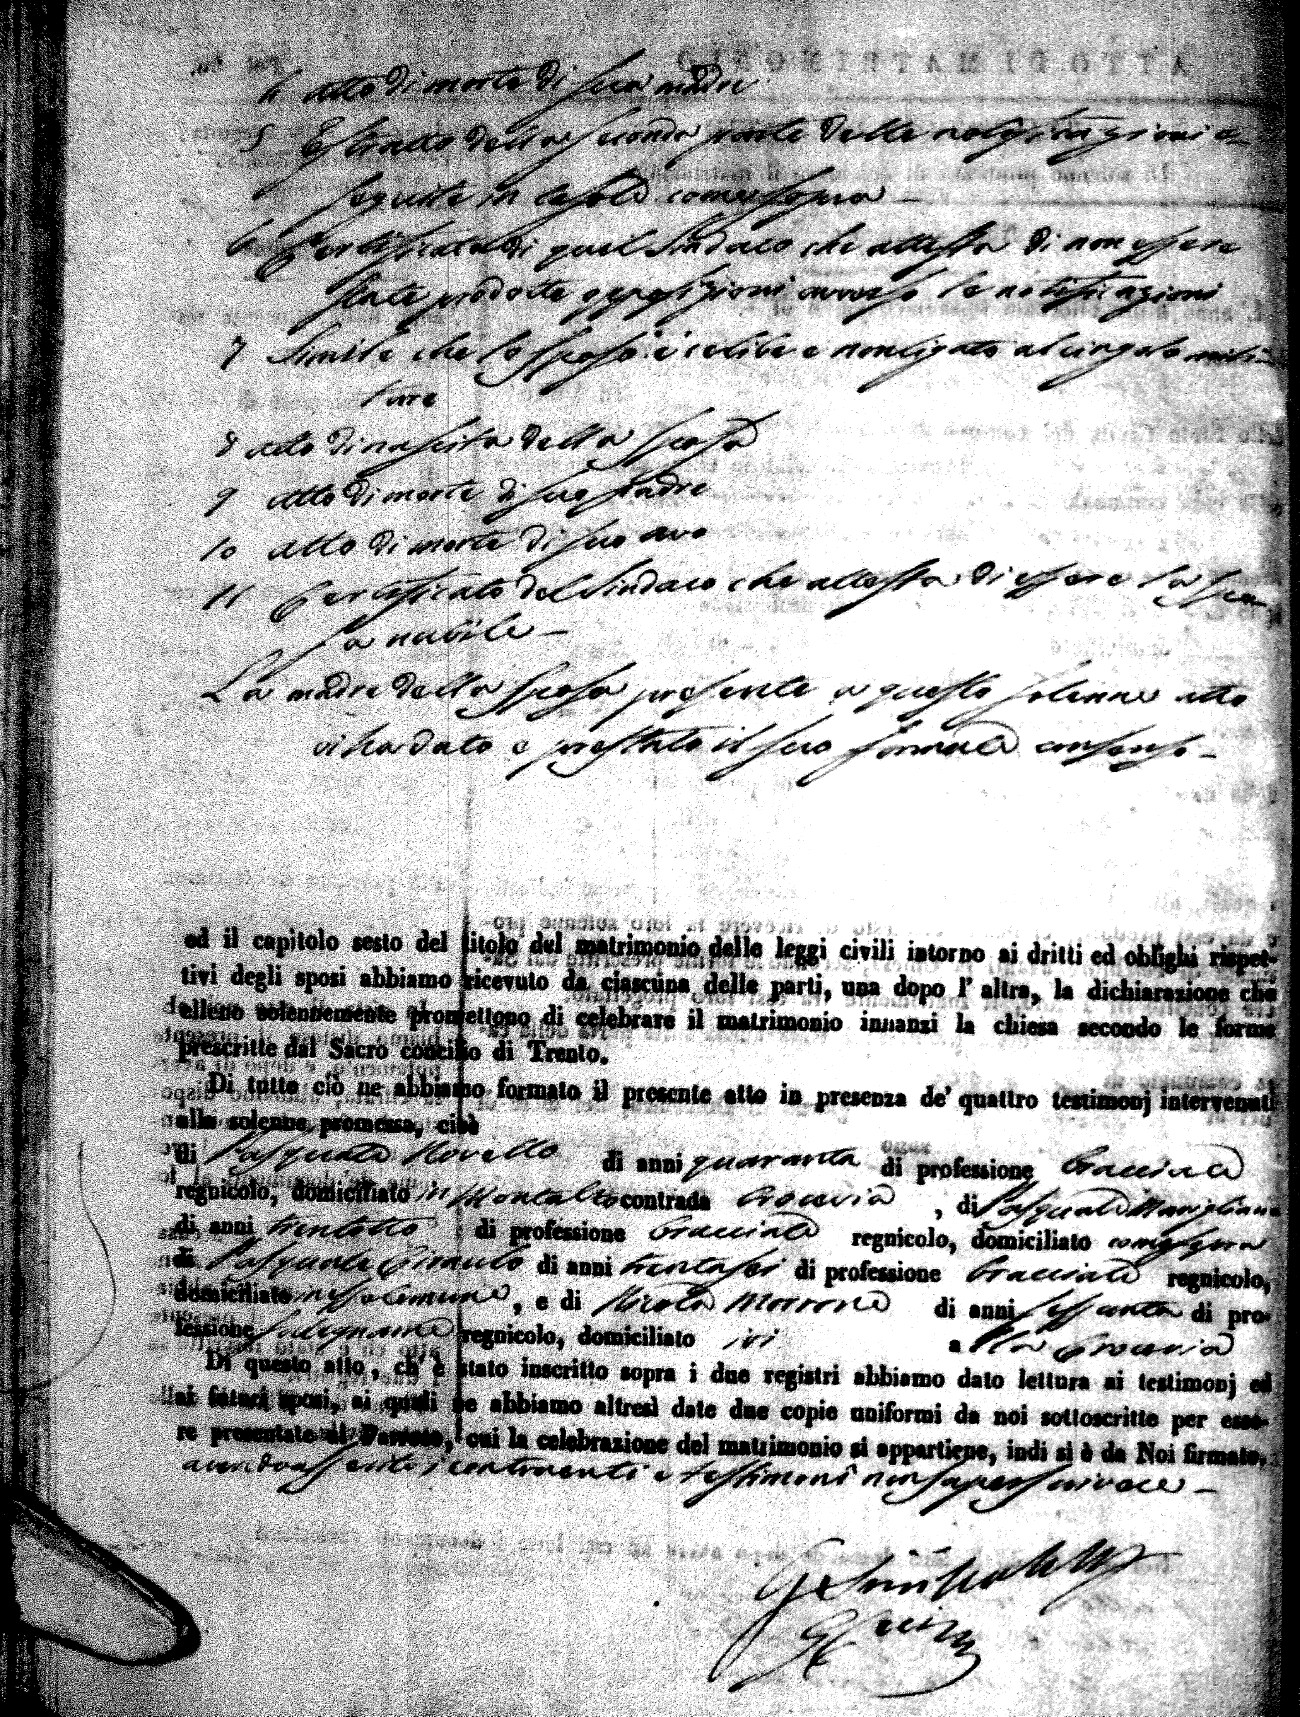 4 Atto di morte di sua madre
5 Estratto della seconda parte delle notificazioni e-
seguite in Casole come sopra -
6 Certificato di quel Sindaco che attesta di non essere
state prodotte opposizioni avverso le notificazioni
7 Simile che lo sposo è celibe e non ligato al cingolo mili-
tare
8 Atto di nascita della sposa
9 Atto di morte di suo padre
10 Atto di morte di suo avo
11 Certificato del Sindaco che attesta di essere la spo-
sa nubile -
La madre della sposa presente a questo solenne atto
vi ha dato e prestato il suo formale consenso -
ed il capitolo sesto del titolo del matrimonio delle leggi civili intorno ai dritti ed oblighi rispet-
tivi degli sposi abbiamo ricevuto da ciascuna delle parti, una dopo l' altra, la dichiarazione che
elleno solennemente promettono di celebrare il matrimonio innanzi la chiesa secondo le forme
prescritte dal Sacro concilio di Trento.
Di tutto ciò ne abbiamo formato il presente atto in presenza de' quattro testimonj intervenuti
alla solenne promessa, cioè
di Pasquale Novello di anni quaranta di professione bracciale
regnicolo, domiciliato in Montalto contrada , di Pasquale Marigliano
di anni trentotto di professione bracciale regnicolo, domiciliato come sopra
di Pasquale di anni trentasei di professione bracciale regnicolo,
domiciliato in esso Comune, e di Nicola Morrone di anni sessanta di pro-
fessione falegname regnicolo, domiciliato ivi alla
Di questo atto, ch' è stato inscritto sopra i due registri abbiamo dato lettura ai testimonj ed
ai futuri sposi, ai quali ne abbiamo altresì date due copie uniformi da noi sottoscritte per esse-
re presentate al Parroco, cui la celebrazione del matrimonio si appartiene, indi si è da Noi firmato,
avendo asserito i contraenti e testimoni non saper scrivere -